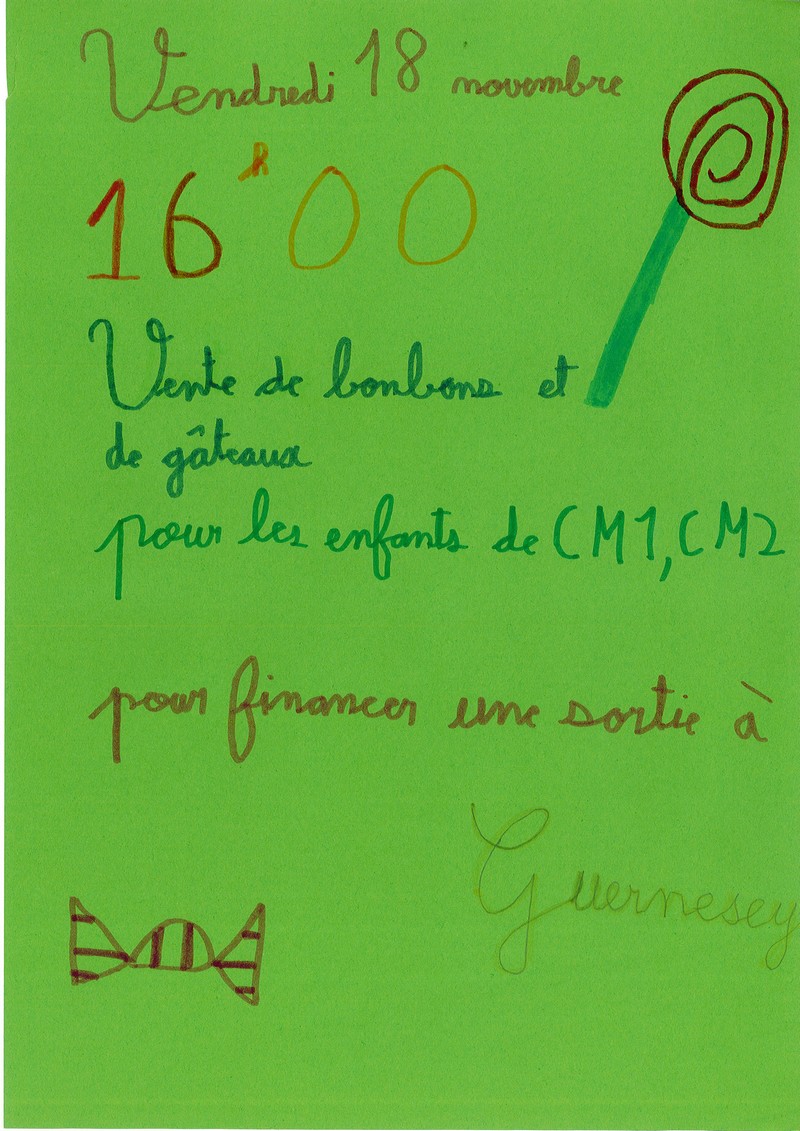 Vendredi 18 novembre
16h00
Vente de bonbons et
de gâteaux
pour les enfants de CM1, CM2
pour financer une sortie à
Guernesey